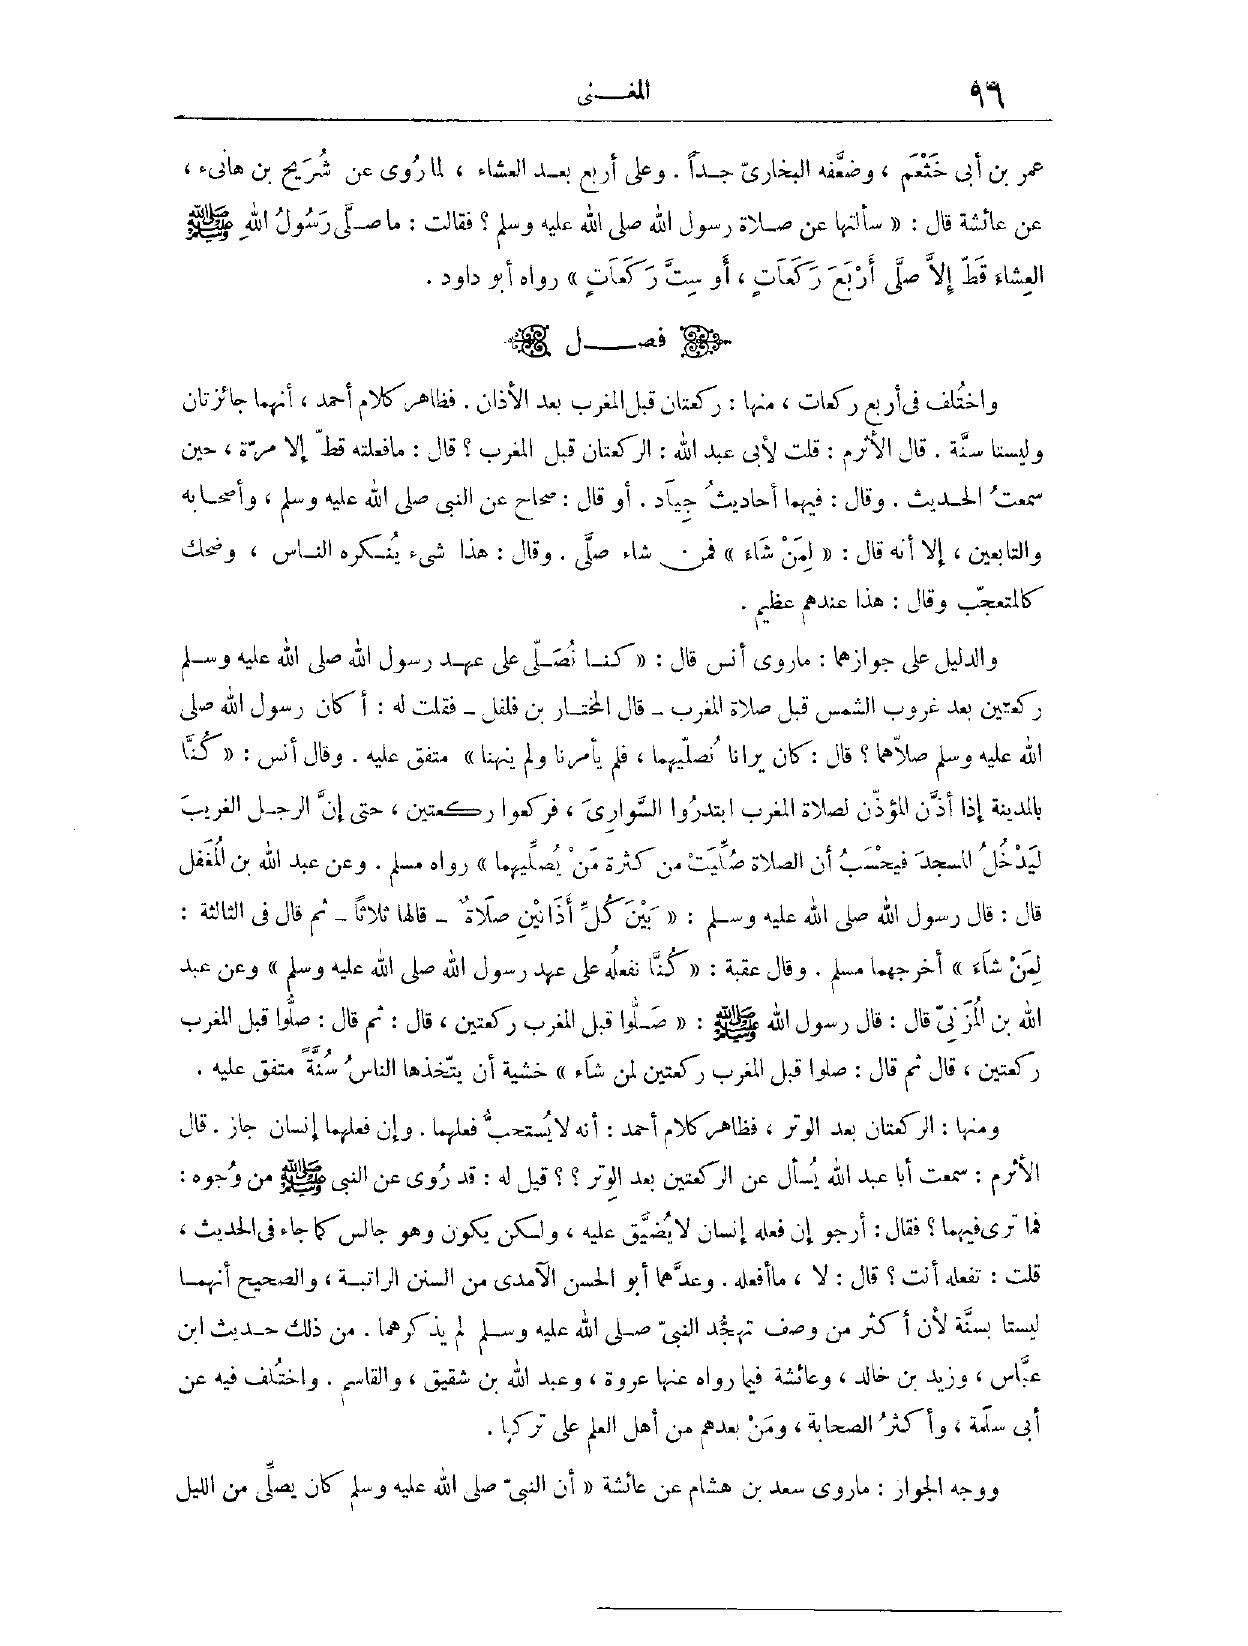 ٩٦
المغنى
عمر بن أبى خَثْعَم ، وضعَّفه البخارىّ جداً . وعلى أربع بعد العشاء ، لما رُوى عن شُرَيح بن هانىء ،
عن عائشة قال : « سألتها عن صلاة رسول الله صلى الله عليه وسلم ؟ فقالت : ما صلَّى رَسُولُ اللهِ ﷺ
العِشاء قَطّ إِلاَّ صلَّى أَرْبَعَ رَكَعَاتٍ ، أَو سِتَّ رَكَعَاتٍ » رواه أبو داود .
فصل
واختُلف فى أربع ركعات ، منها : ركعتان قبل المغرب بعد الأذان . فظاهر كلام أحمد ، أنهما جائزتان
وليستا سنَّة . قال الأثرم : قلت لأبى عبد الله : الركعتان قبل المغرب ؟ قال : ما فعلته قطّ إلا مرّة ، حين
سمعتُ الحديث . وقال : فيهما أحاديثُ جِيَاد . أو قال : صحاح عن النبى صلى الله عليه وسلم ، وأصحابه
والتابعين ، إلا أنه قال : « لِمَنْ شَاء » فمن شاء صلَّى . وقال : هذا شىء يُنكره الناس ، وضحك
كالمتعجّب وقال : هذا عندهم عظيم .
والدليل على جوازهما : ما روى أنس قال : « كنا نُصَلّى على عهد رسول الله صلى الله عليه وسلم
ركعتين بعد غروب الشمس قبل صلاة المغرب ـ قال المختار بن فلفل ـ فقلت له : أكان رسول الله صلى
الله عليه وسلم صلاّهما ؟ قال : كان يرانا نُصلّيهما ، فلم يأمرنا ولم ينهنا » متفق عليه . وقال أنس : « كُنَّا
بالمدينة إذا أذَّن المؤذّن لصلاة المغرب ابتدرُوا السَّوارِىَ ، فركعوا ركعتين ، حتى إنَّ الرجل الغريبَ
لَيَدْخُلُ المسجدَ فيحْسَبُ أن الصلاة صُلِّيَتْ من كثرة مَنْ يُصلِّيهما » رواه مسلم . وعن عبد الله بن المُغَفل
قال : قال رسول الله صلى الله عليه وسلم : « بَيْنَ كُلِّ أَذَانَيْنِ صلَاةٌ ـ قالها ثلاثاً ـ ثم قال فى الثالثة :
لِمَنْ شَاءَ » أخرجهما مسلم . وقال عقبة : « كُنَّا نفعلُه على عهد رسول الله صلى الله عليه وسلم » وعن عبد
الله بن المُزَنِىّ قال : قال رسول الله ﷺ : « صَلُّوا قبل المغرب ركعتين ، قال : ثم قال : صلُّوا قبل المغرب
ركعتين ، قال ثم قال : صلوا قبل المغرب ركعتين لمن شاء » خشية أن يتّخذها الناسُ سُنَّةً متفق عليه .
ومنها : الركعتان بعد الوتر ، فظاهر كلام أحمد : أنه لا يُستحبُّ فعلهما . وإن فعلهما إنسان جاز . قال
الأثرم : سمعت أبا عبد الله يُسأل عن الركعتين بعد الوِتر ؟ ؟ قيل له : قد رُوى عن النبى ﷺ من وُجوه :
فما ترى فيهما ؟ فقال : أرجو إن فعله إنسان لا يُضيَّق عليه ، ولكن يكون وهو جالس كما جاء فى الحديث ،
قلت : تفعله أنت ؟ قال : لا ، ما أفعله . وعدَّهما أبو الحسن الآمدى من السنن الراتبة ، والصحيح أنهما
ليستا بسنَّة لأن أكثر من وصف تهجُّد النبىّ صلى الله عليه وسلم لم يذكرهما . من ذلك حديث ابن
عبَّاس ، وزيد بن خالد ، وعائشة فيما رواه عنها عروة ، وعبد الله بن شقيق ، والقاسم . واختُلف فيه عن
أبى سلَمة ، وأكثرُ الصحابة ، ومَنْ بعدهم من أهل العلم على تركها .
ووجه الجواز : ما روى سعد بن هشام عن عائشة « أن النبىّ صلى الله عليه وسلم كان يصلِّى من الليل